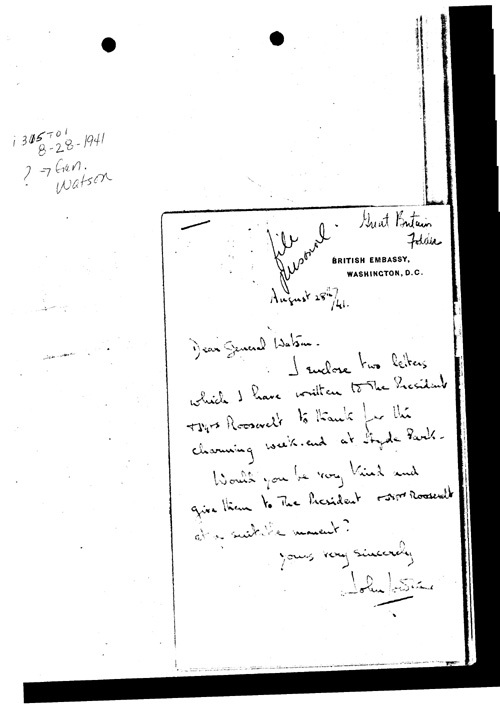 i 365 T01
8-28-1941
? → Gen.
Watson
file
personal.
Great Britain
Folder
BRITISH EMBASSY,
WASHINGTON, D.C.
August 28th/41.
Dear General Watson.
I enclose two letters
which I have written to The President
+ Mrs Roosevelt to thank for the
charming week-end at Hyde Park.
Would you be very kind and
give them to The President + Mrs Roosevelt
at a suitable moment?
yours very sincerely
John